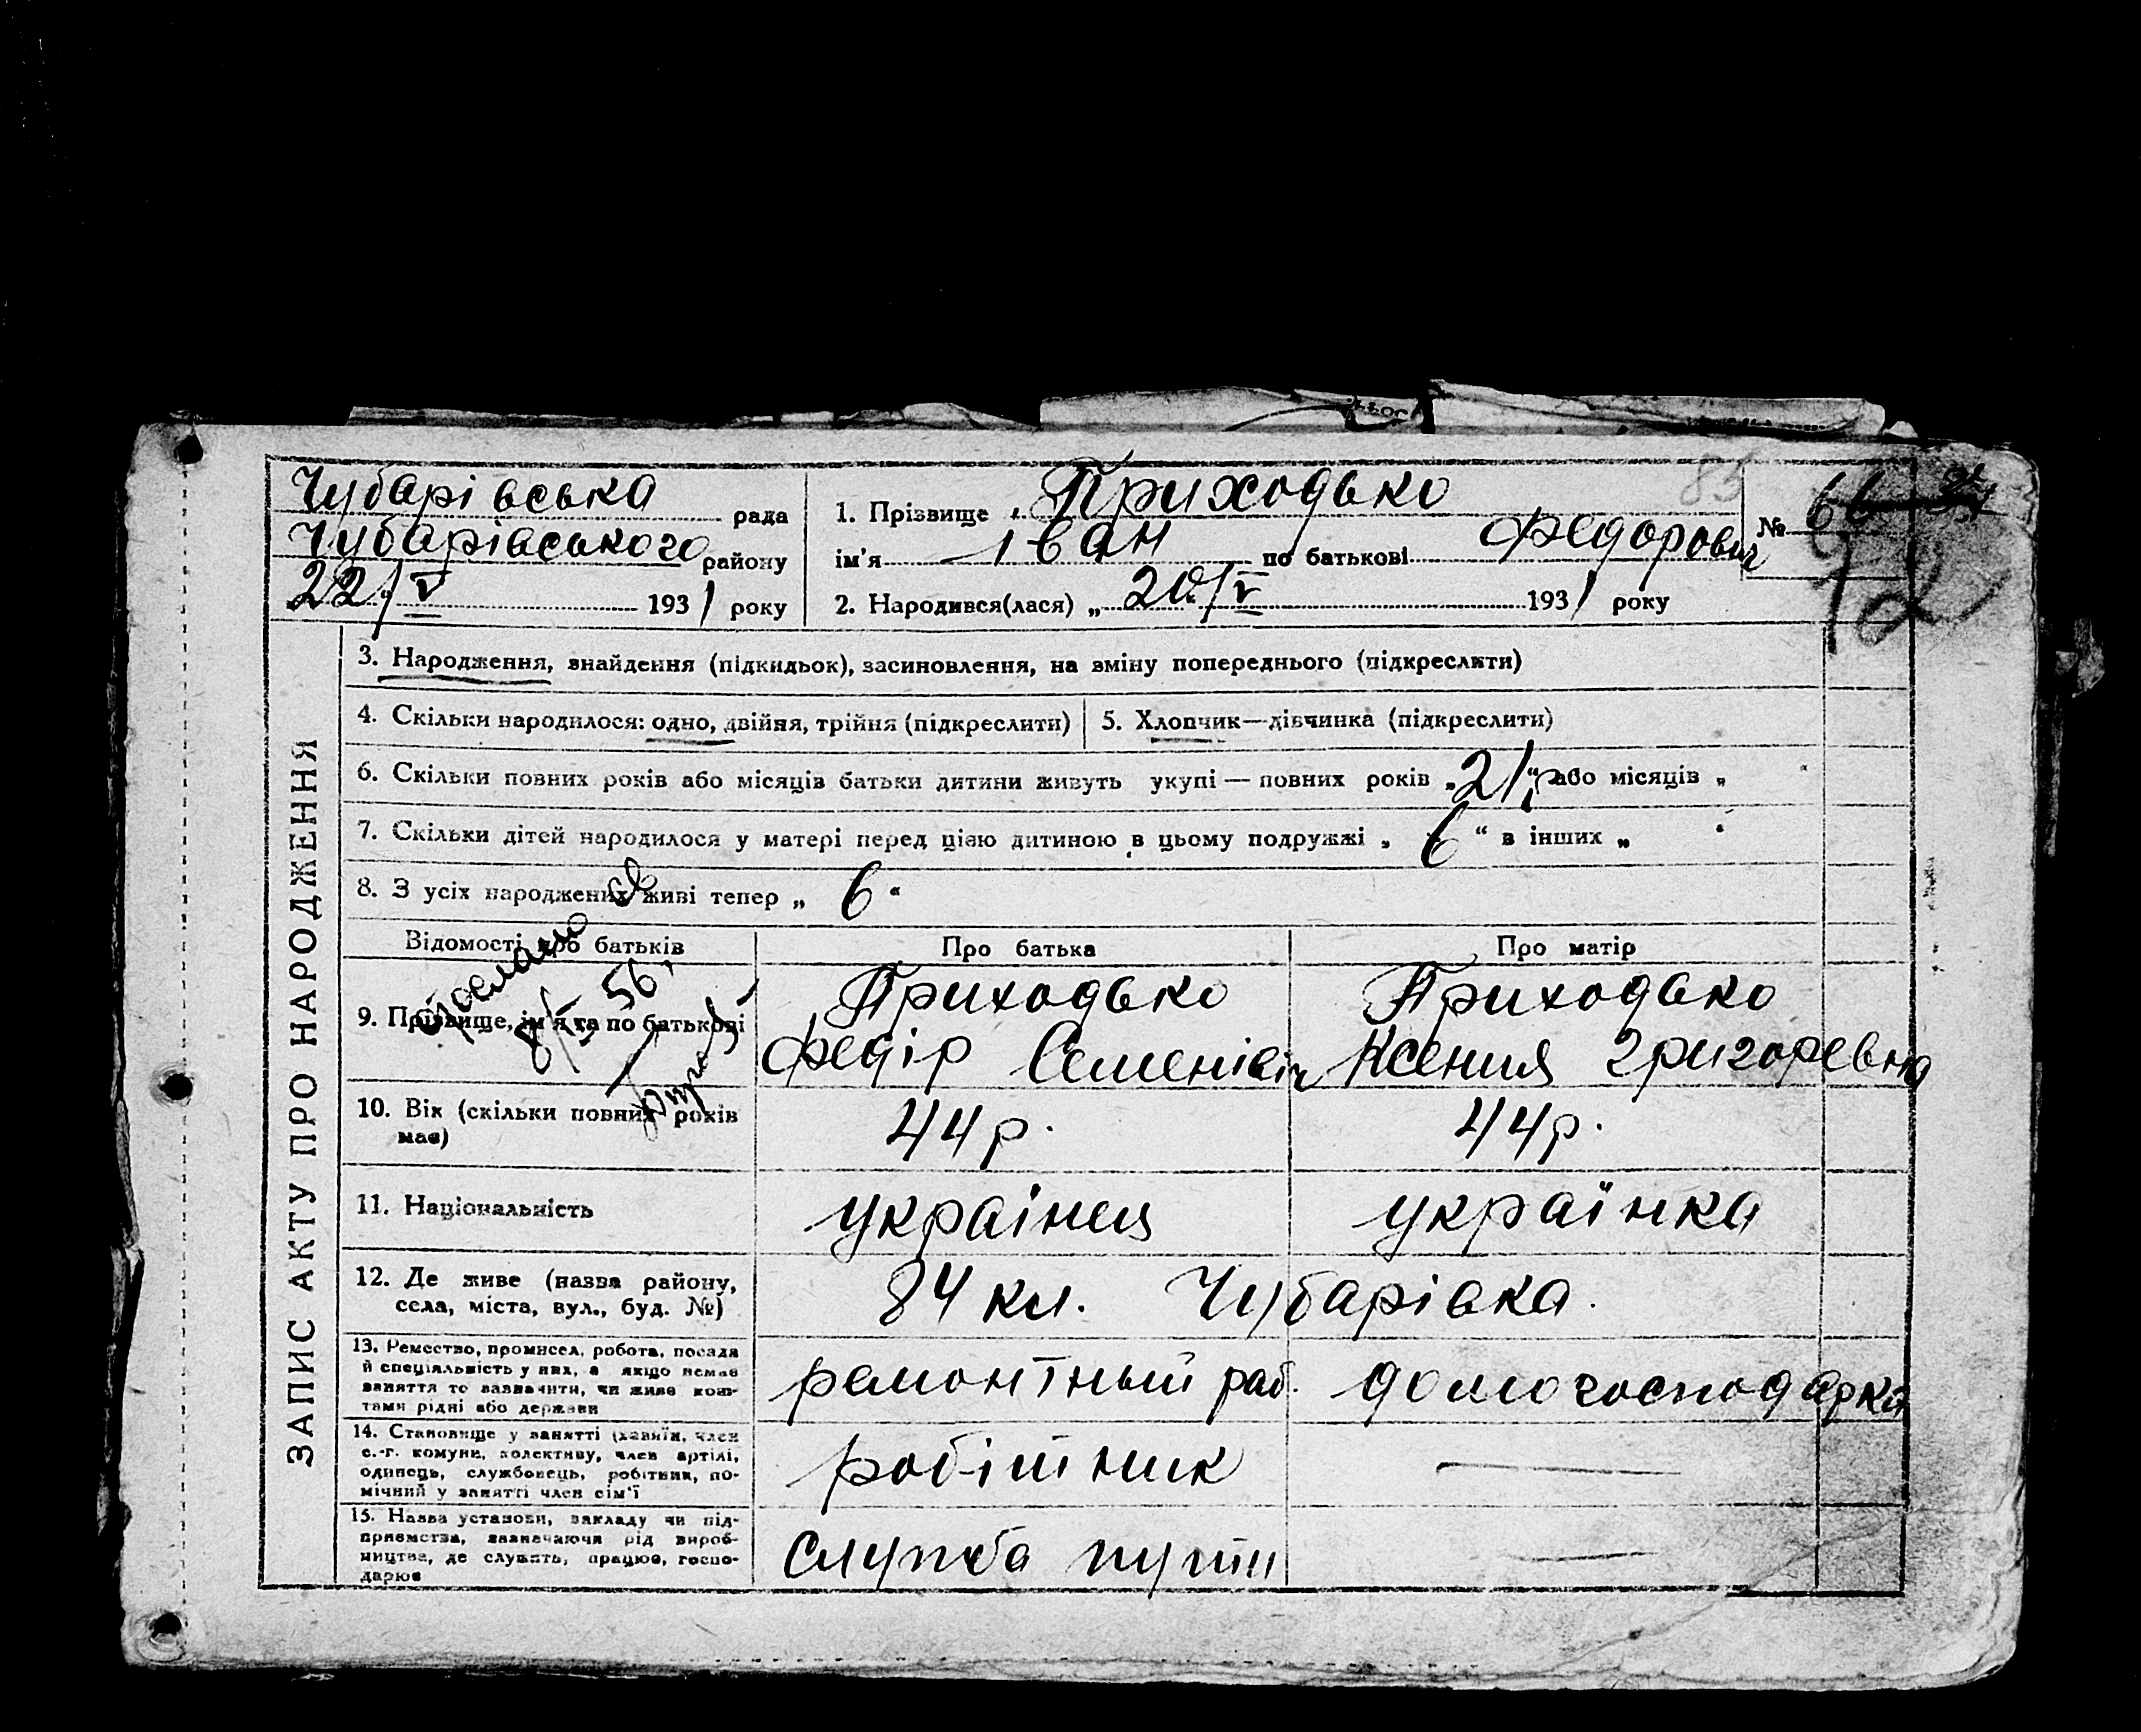 Чубарівська рада
Чубарівського району
22/V 1931 року
1. Прізвище Приходько
ім'я Іван по батькові Федорович
2. Народився(лася) „20/V 1931 року
83
№ 66
72
ЗАПИС АКТУ ПРО НАРОДЖЕННЯ
3. Народження, знайдення (підкидьок), засиновлення, на зміну попереднього (підкреслити)
4. Скільки народилося: одно, двійня, трійня (підкреслити)
5. Хлопчик—дівчинка (підкреслити)
6. Скільки повних років або місяців батьки дитини живуть укупі — повних років „21р“ або місяців „ “
7. Скільки дітей народилося у матері перед цією дитиною в цьому подружжі „6“ в інших „ “
8. З усіх народжених живі тепер „6“
Відомості про батьків Про батька Про матір
9. Прізвище, ім'я та по батькові
Приходько
Федір Семенівіч
Приходько
Ксения Григоревна
8/IX 56,
10. Вік (скільки повних років має) 44р. 44р.
11. Національність украінец українка
12. Де живе (назва району, села, міста, вул., буд. №) 84 кл. Чубарівка.
13. Ремество, промисел, робота, посада
й спеціальність у них, а якщо немає
заняття то зазначити, чи живе кош-
тами рідні або держави
ремонтный раб. домогосподарка
14. Становище у занятті (хазяїн, член
с.-г. комуни, колективу, член артілі,
одинець, службовець, робітник, по-
мічний у занятті член сім'ї
робітник —
15. Назва установи, закладу чи під-
приємства, зазначаючи рід вироб-
ництва, де служить, працює, госпо-
дарює
служба пути —